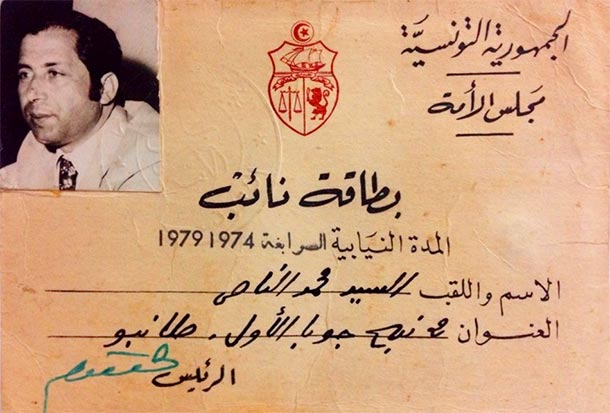 الجمهورية التونسية
مجلس الأمة
بطاقة نائب
المدة النيابية الرابعة 1974 1979
الاسم واللقب السيد محمد الناصر
العنوان نهج جوبا الأول
الرئيس